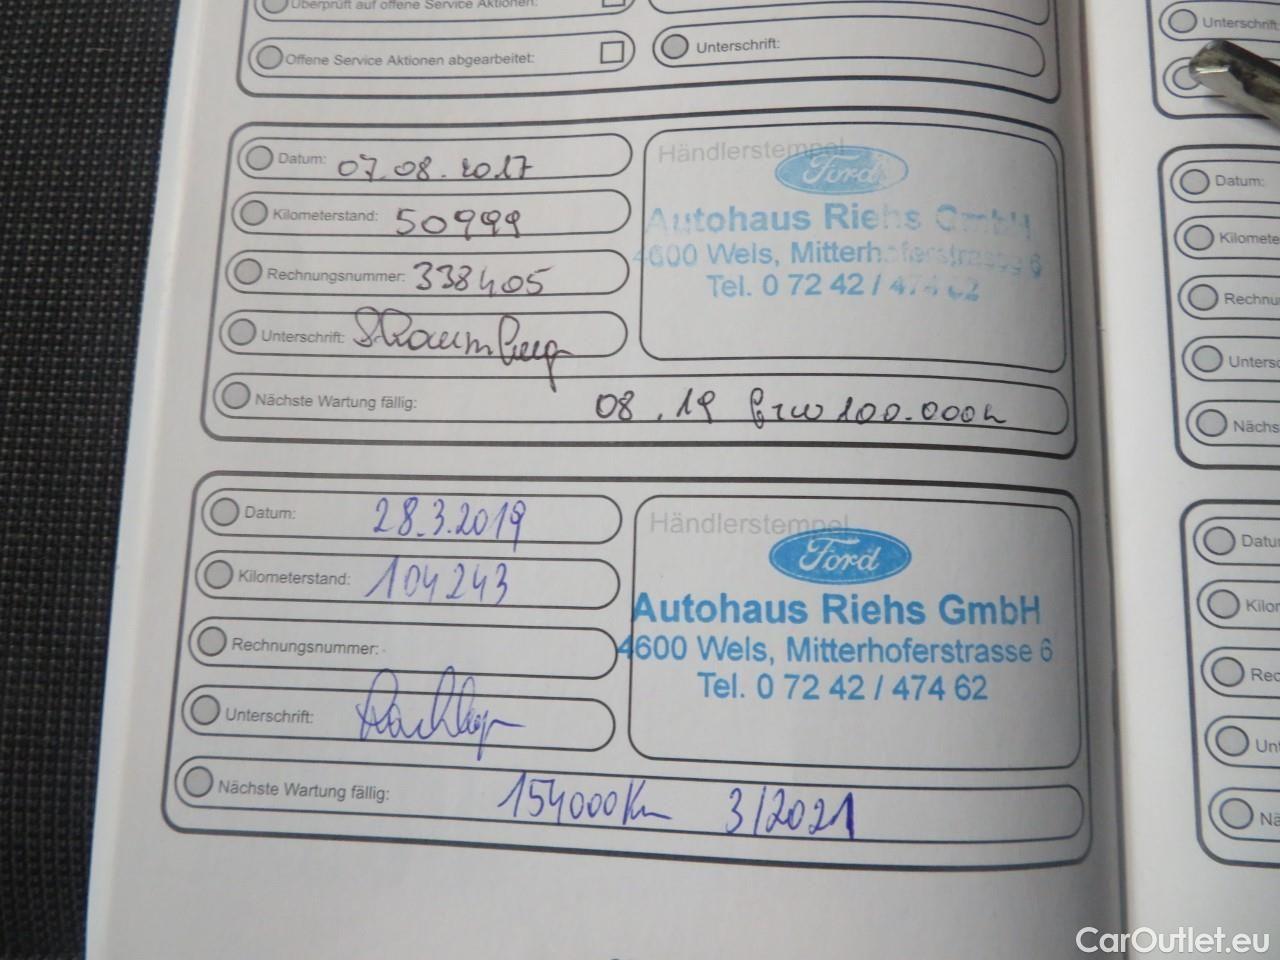 Überprüft auf offene Service Aktionen:
Offene Service Aktionen abgearbeitet:
Unterschrift:
Datum: 07.08.2017
Kilometerstand: 50999
Rechnungsnummer: 338405
Unterschrift:
Nächste Wartung fällig: 08.19 bzw 100.000k
Händlerstempel
Ford
Autohaus Riehs GmbH
4600 Wels, Mitterhoferstrasse 6
Tel. 0 72 42 / 474 62
Datum: 28.3.2019
Kilometerstand: 104243
Rechnungsnummer:
Unterschrift:
Nächste Wartung fällig: 154000Km 3/2021
Händlerstempel
Ford
Autohaus Riehs GmbH
4600 Wels, Mitterhoferstrasse 6
Tel. 0 72 42 / 474 62
Unterschrift
Datum:
Kilomete
Rechnu
Untersc
Nächs
Datu
Kilor
Rec
Unt
Nä
CarOutlet.eu